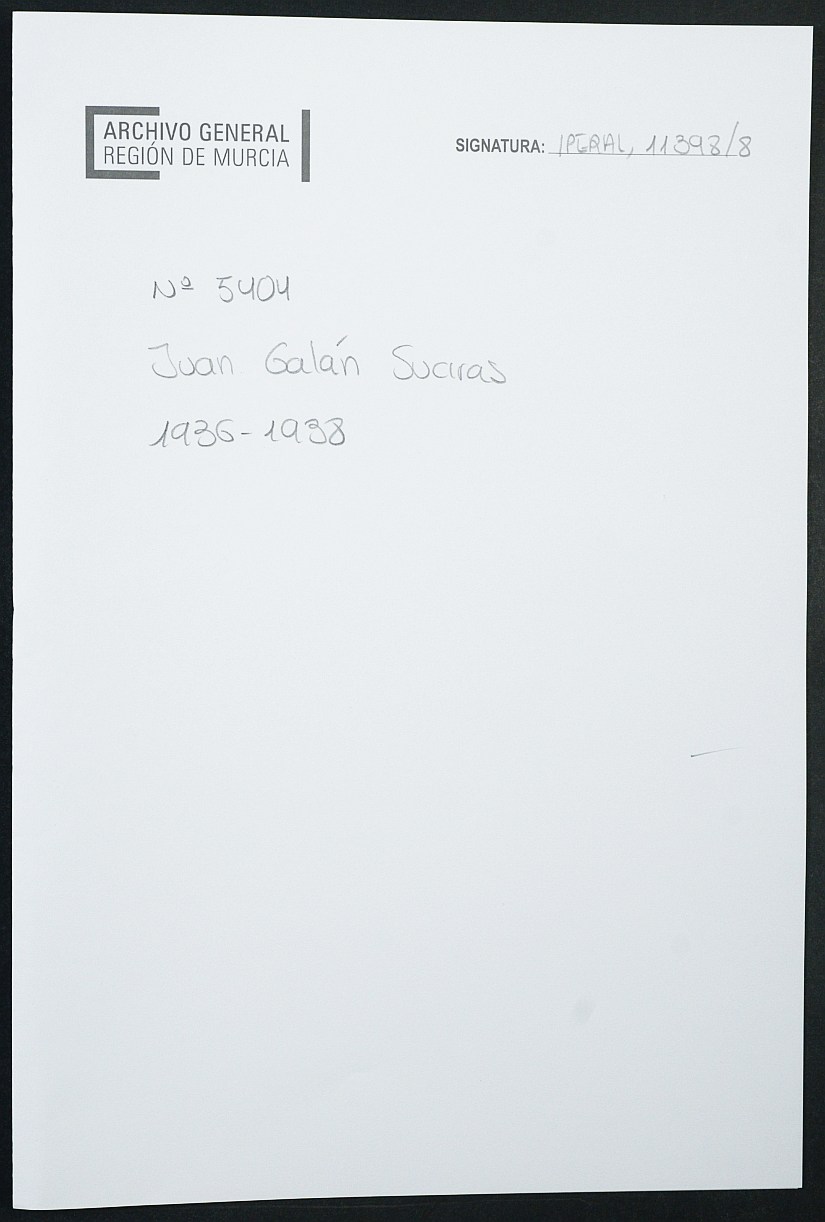 ARCHIVO GENERAL
REGIÓN DE MURCIA
SIGNATURA: IPERAL, 11398/8
Nº 5404
Juan Galán
1936-1938